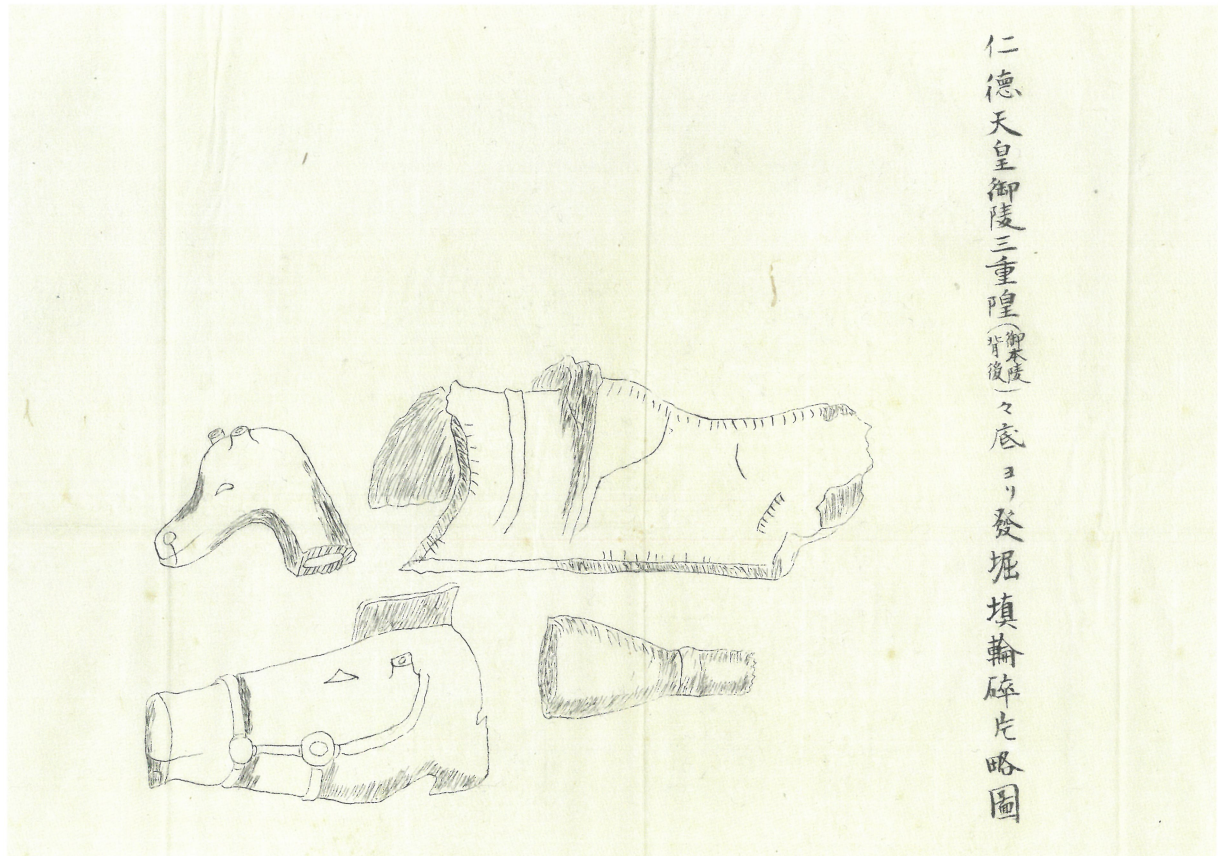 仁德天皇御陵三重隍(御本陵背後)々底ヨリ發堀填輪碎片略圖